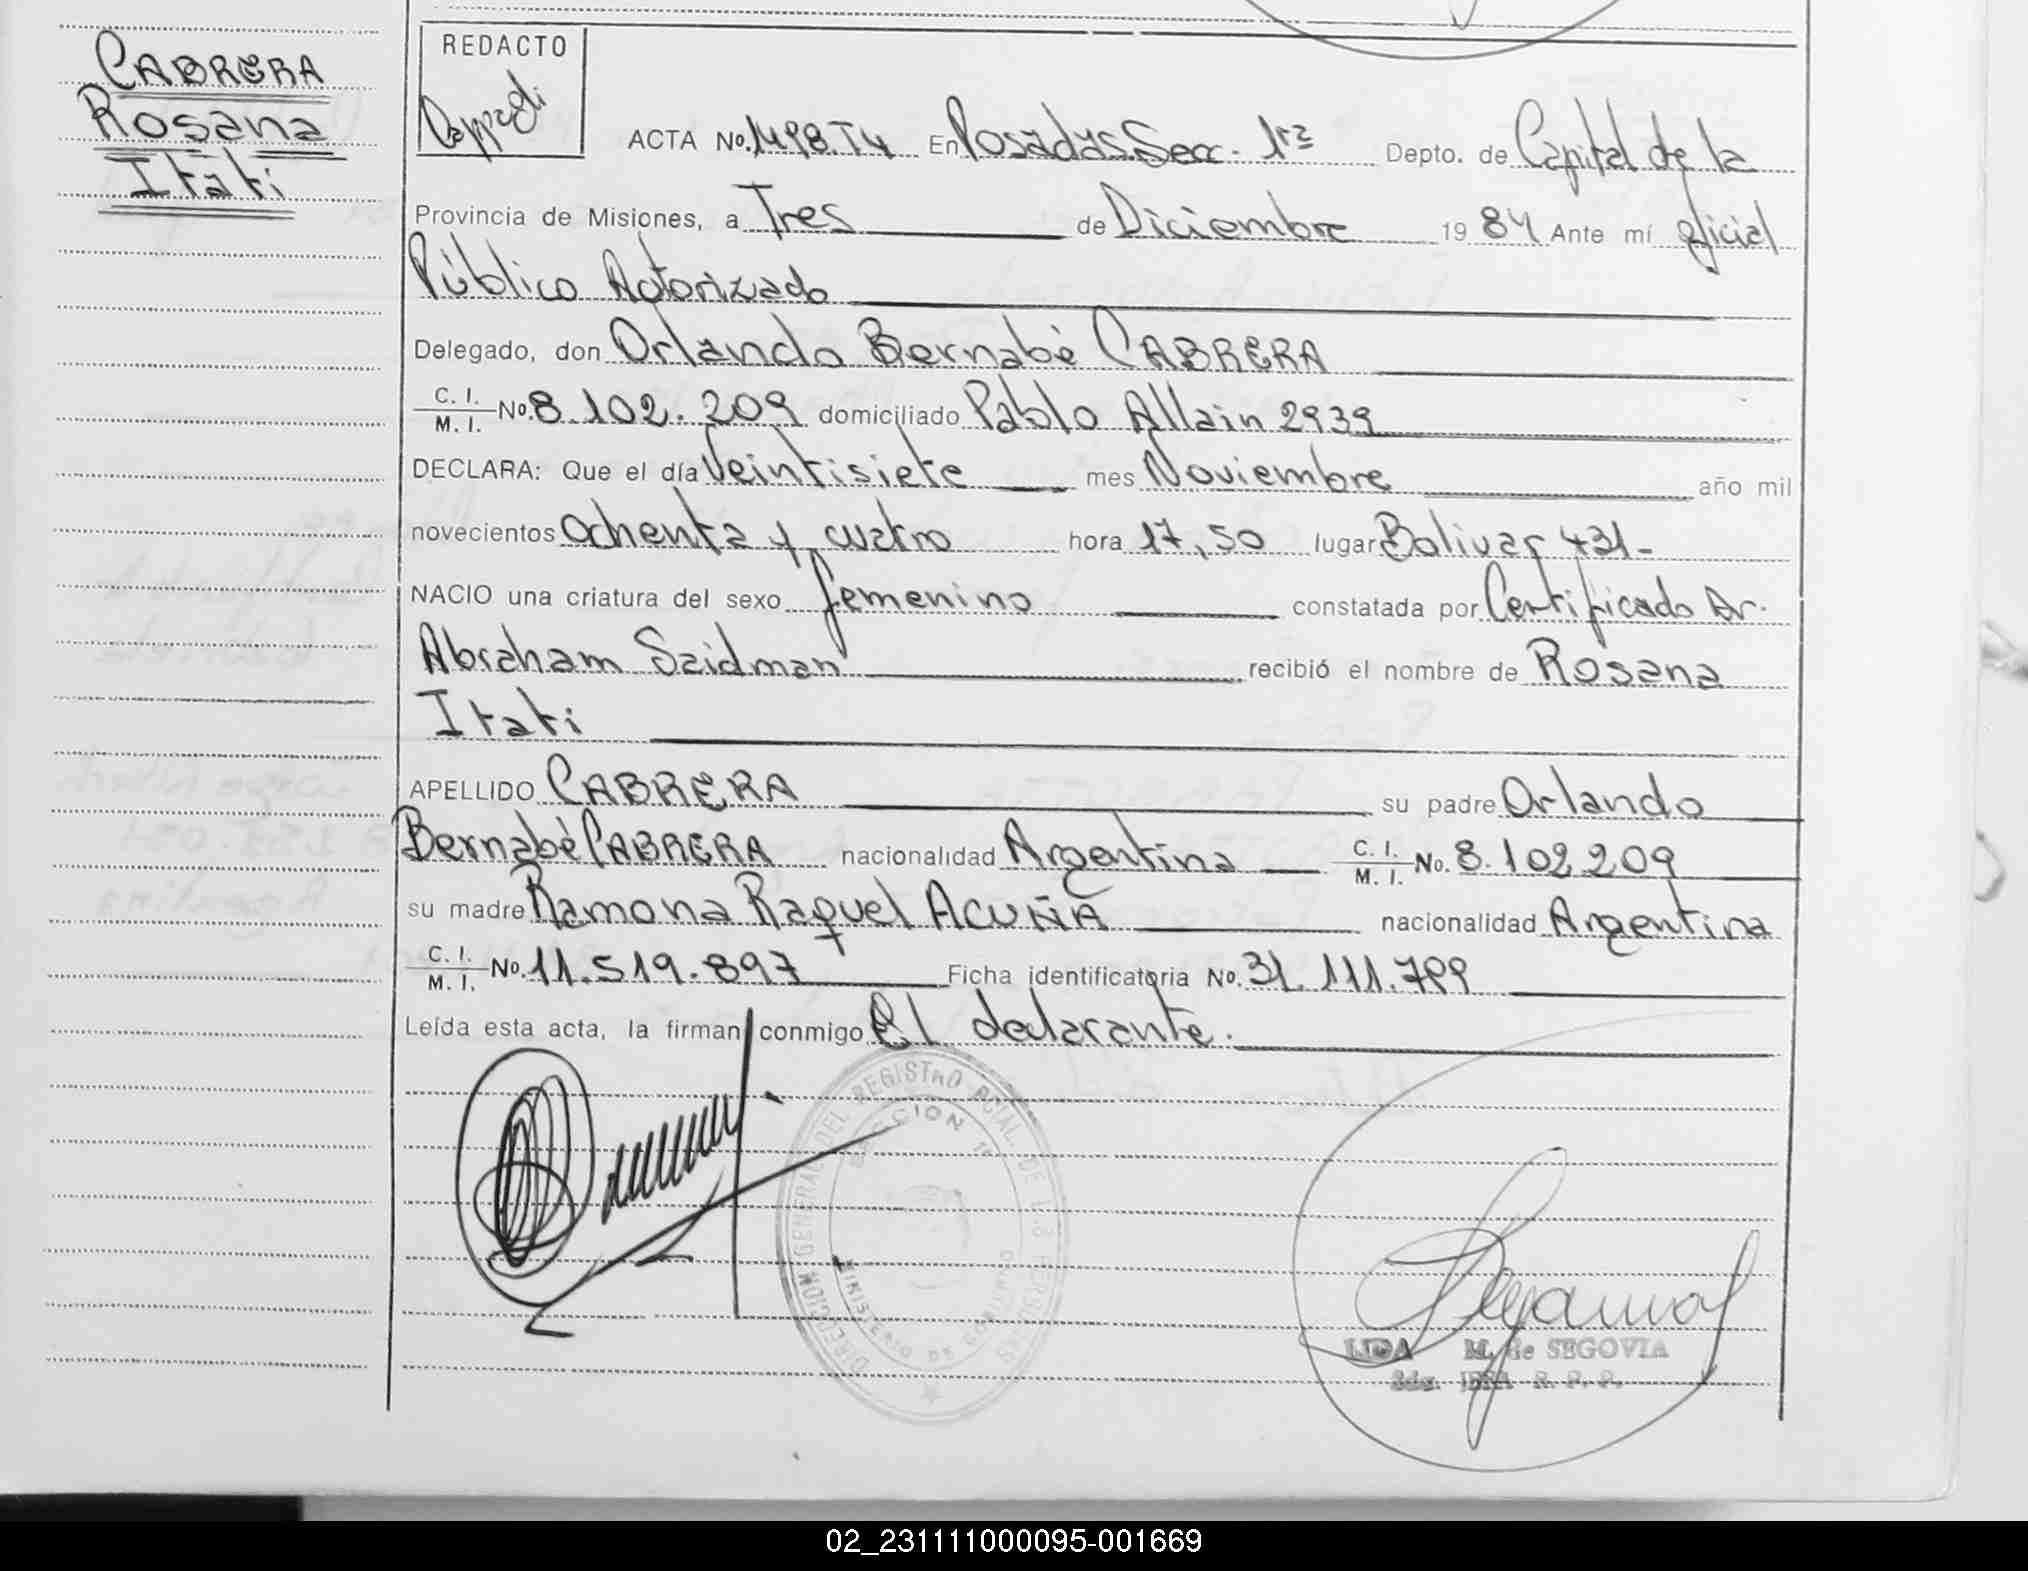 CABRERA
Rosana
Itati
REDACTO
ACTA No. 1498.T4 En Posadas Secc. 1ra Depto. de Capital de la
Provincia de Misiones, a Tres de Diciembre 1984 Ante mí oficial
Público Autorizado
Delegado, don Orlando Bernabé CABRERA
C. I.
M. I. No. 8.102.209 domiciliado Pablo Allain 2939
DECLARA: Que el día Veintisiete mes Noviembre año mil
novecientos ochenta y cuatro hora 17,50 lugar Bolivar 431-
NACIO una criatura del sexo femenino constatada por Certificado Dr.
Abraham Saidman recibió el nombre de Rosana
Itati
APELLIDO CABRERA su padre Orlando
Bernabé CABRERA nacionalidad Argentina C. I.
M. I. No. 8.102.209
su madre Ramona Raquel ACUÑA nacionalidad Argentina
C. I.
M. I. No. 11.519.897 Ficha identificatoria No. 31.111.799
Leída esta acta, la firman conmigo El declarante.
DIRECCION GENERAL DEL REGISTRO PCIAL. DE LAS PERSONAS
SECCION 1ª
MINISTERIO DE GOBIERNO
LIDA M. de SEGOVIA
2da. JEFA R. P. P.
02_231111000095-001669